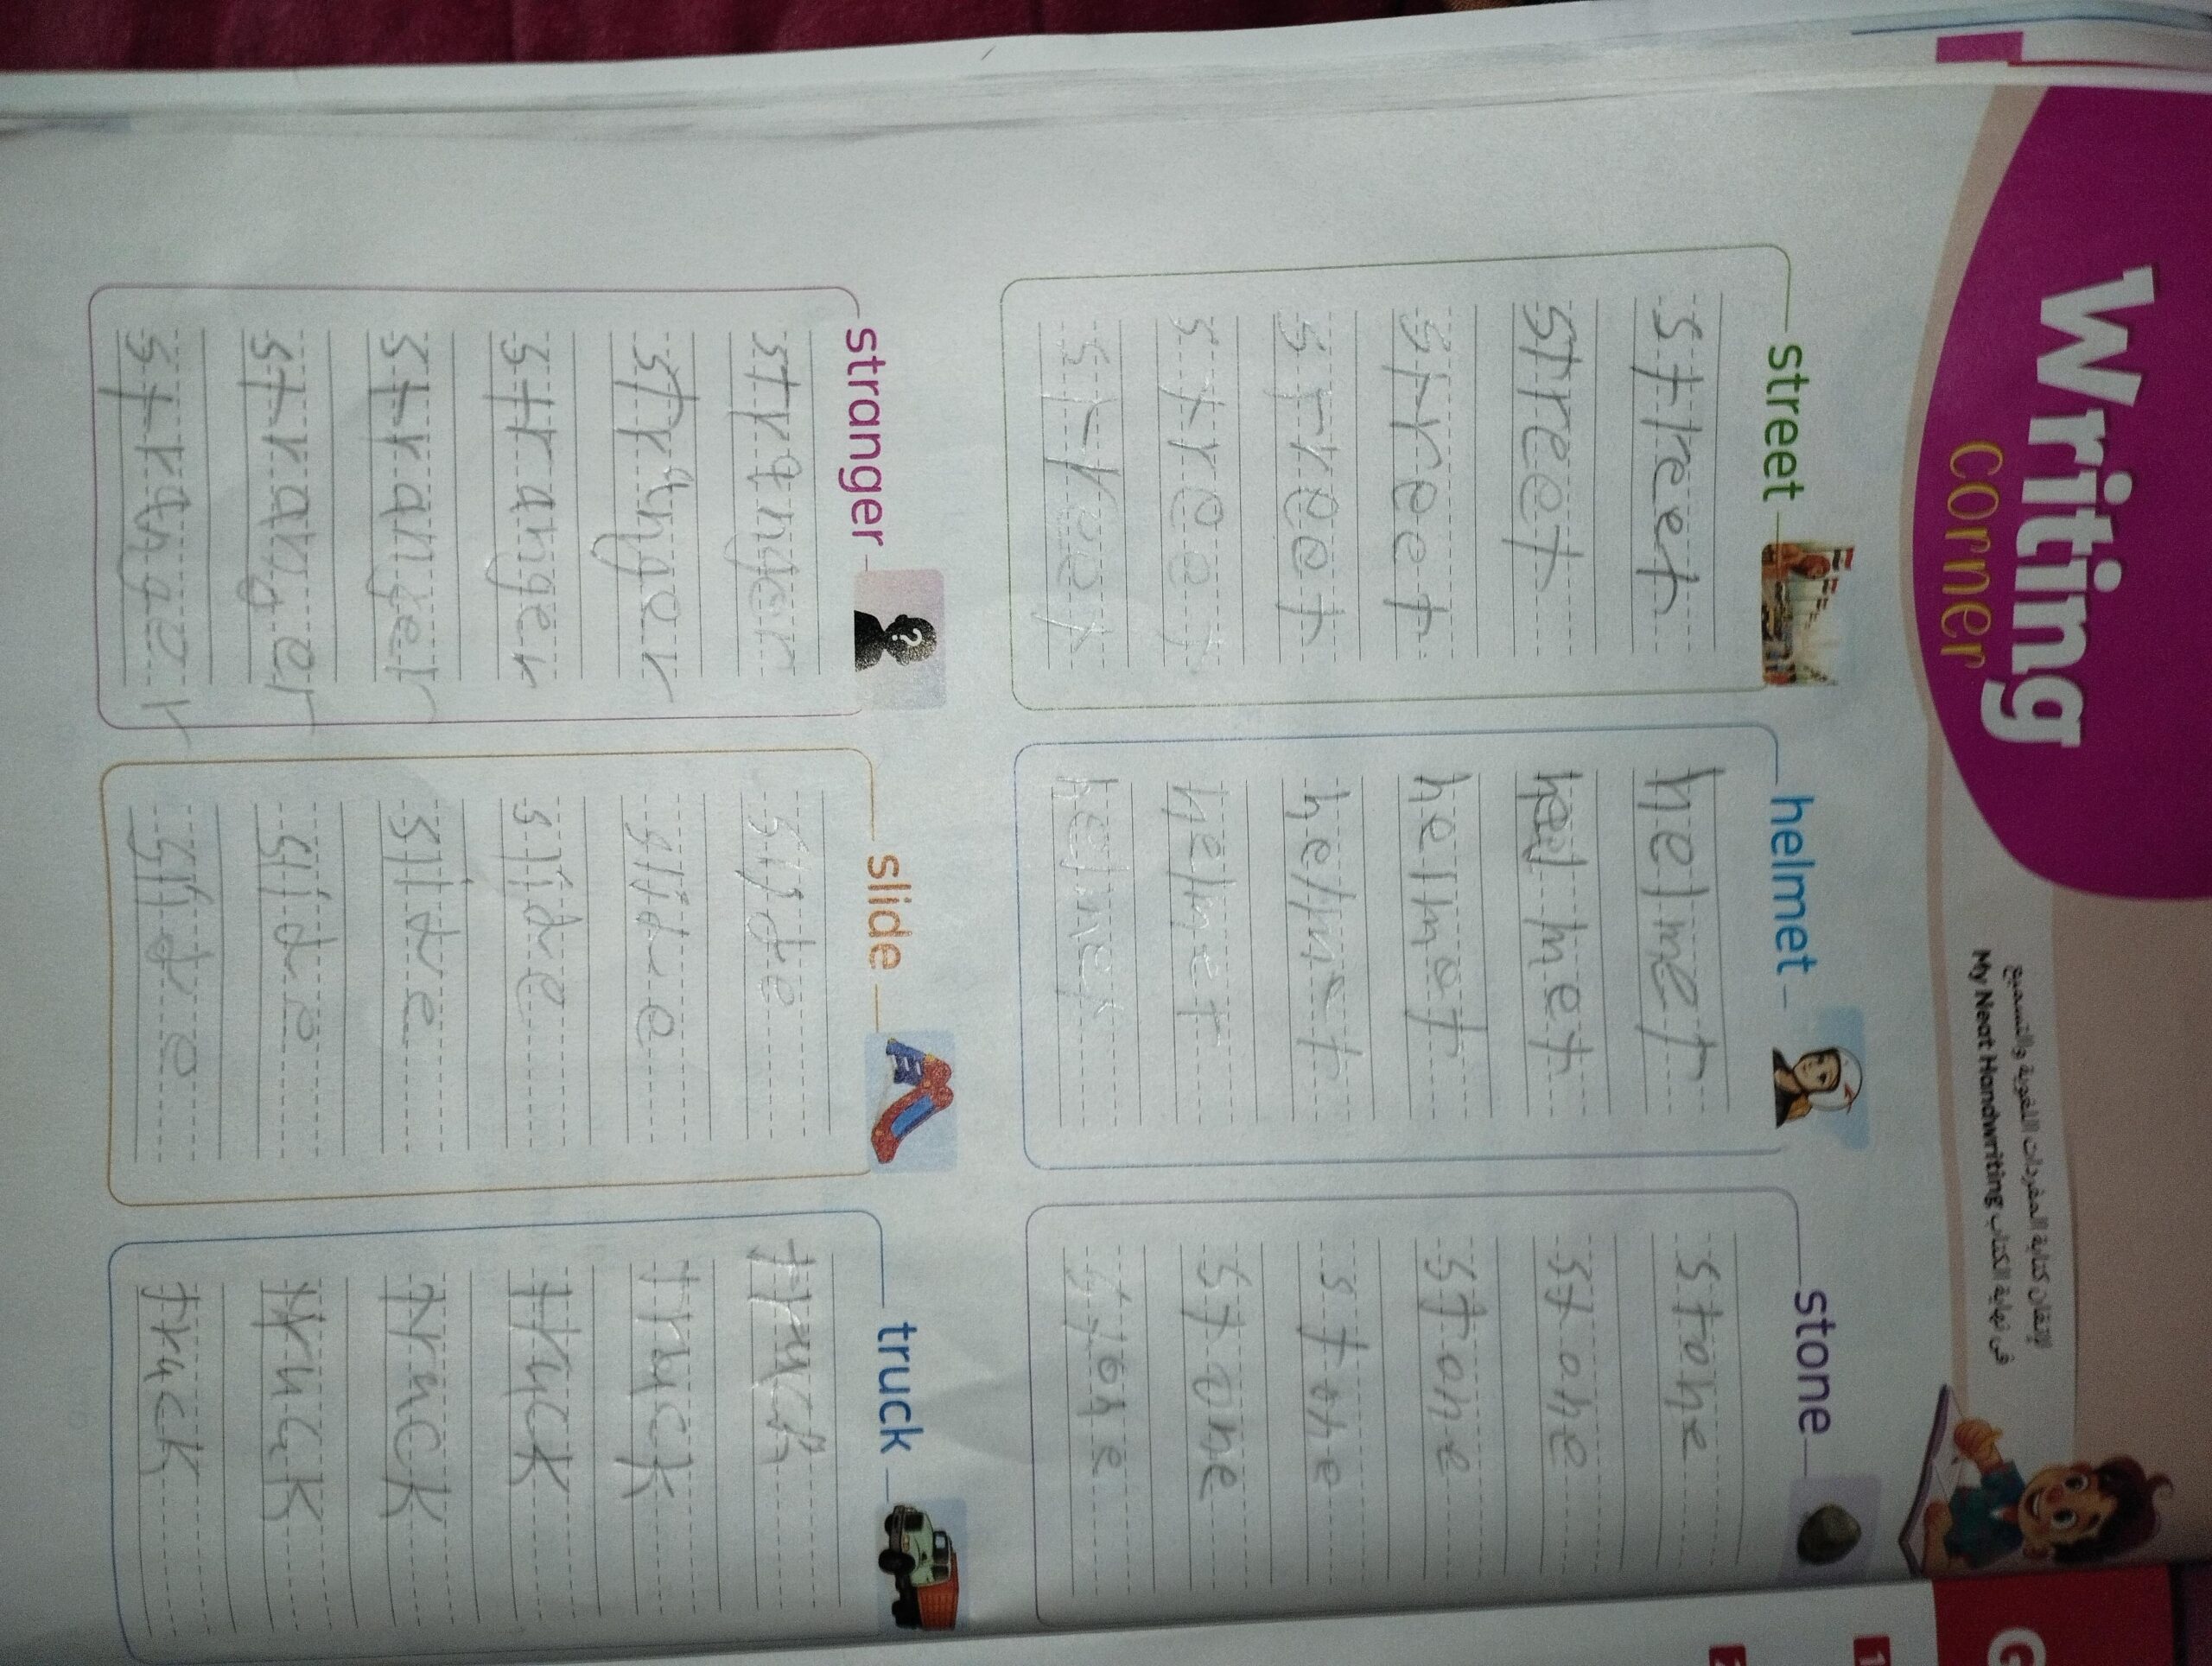 Writing
corner
لإتقان كتابة المفردات اللغوية والتسميع
فى نهاية الكتاب My Neat Handwriting
street
street
street
street
street
street
street
helmet
helmet
helmet
helmet
helmet
helmet
helmet
stone
stone
stone
stone
stone
stone
stone
stranger
stranger
stranger
stranger
stranger
stranger
stranger
slide
slide
slide
slide
slide
slide
slide
truck
truck
truck
truck
truck
truck
truck
G
1